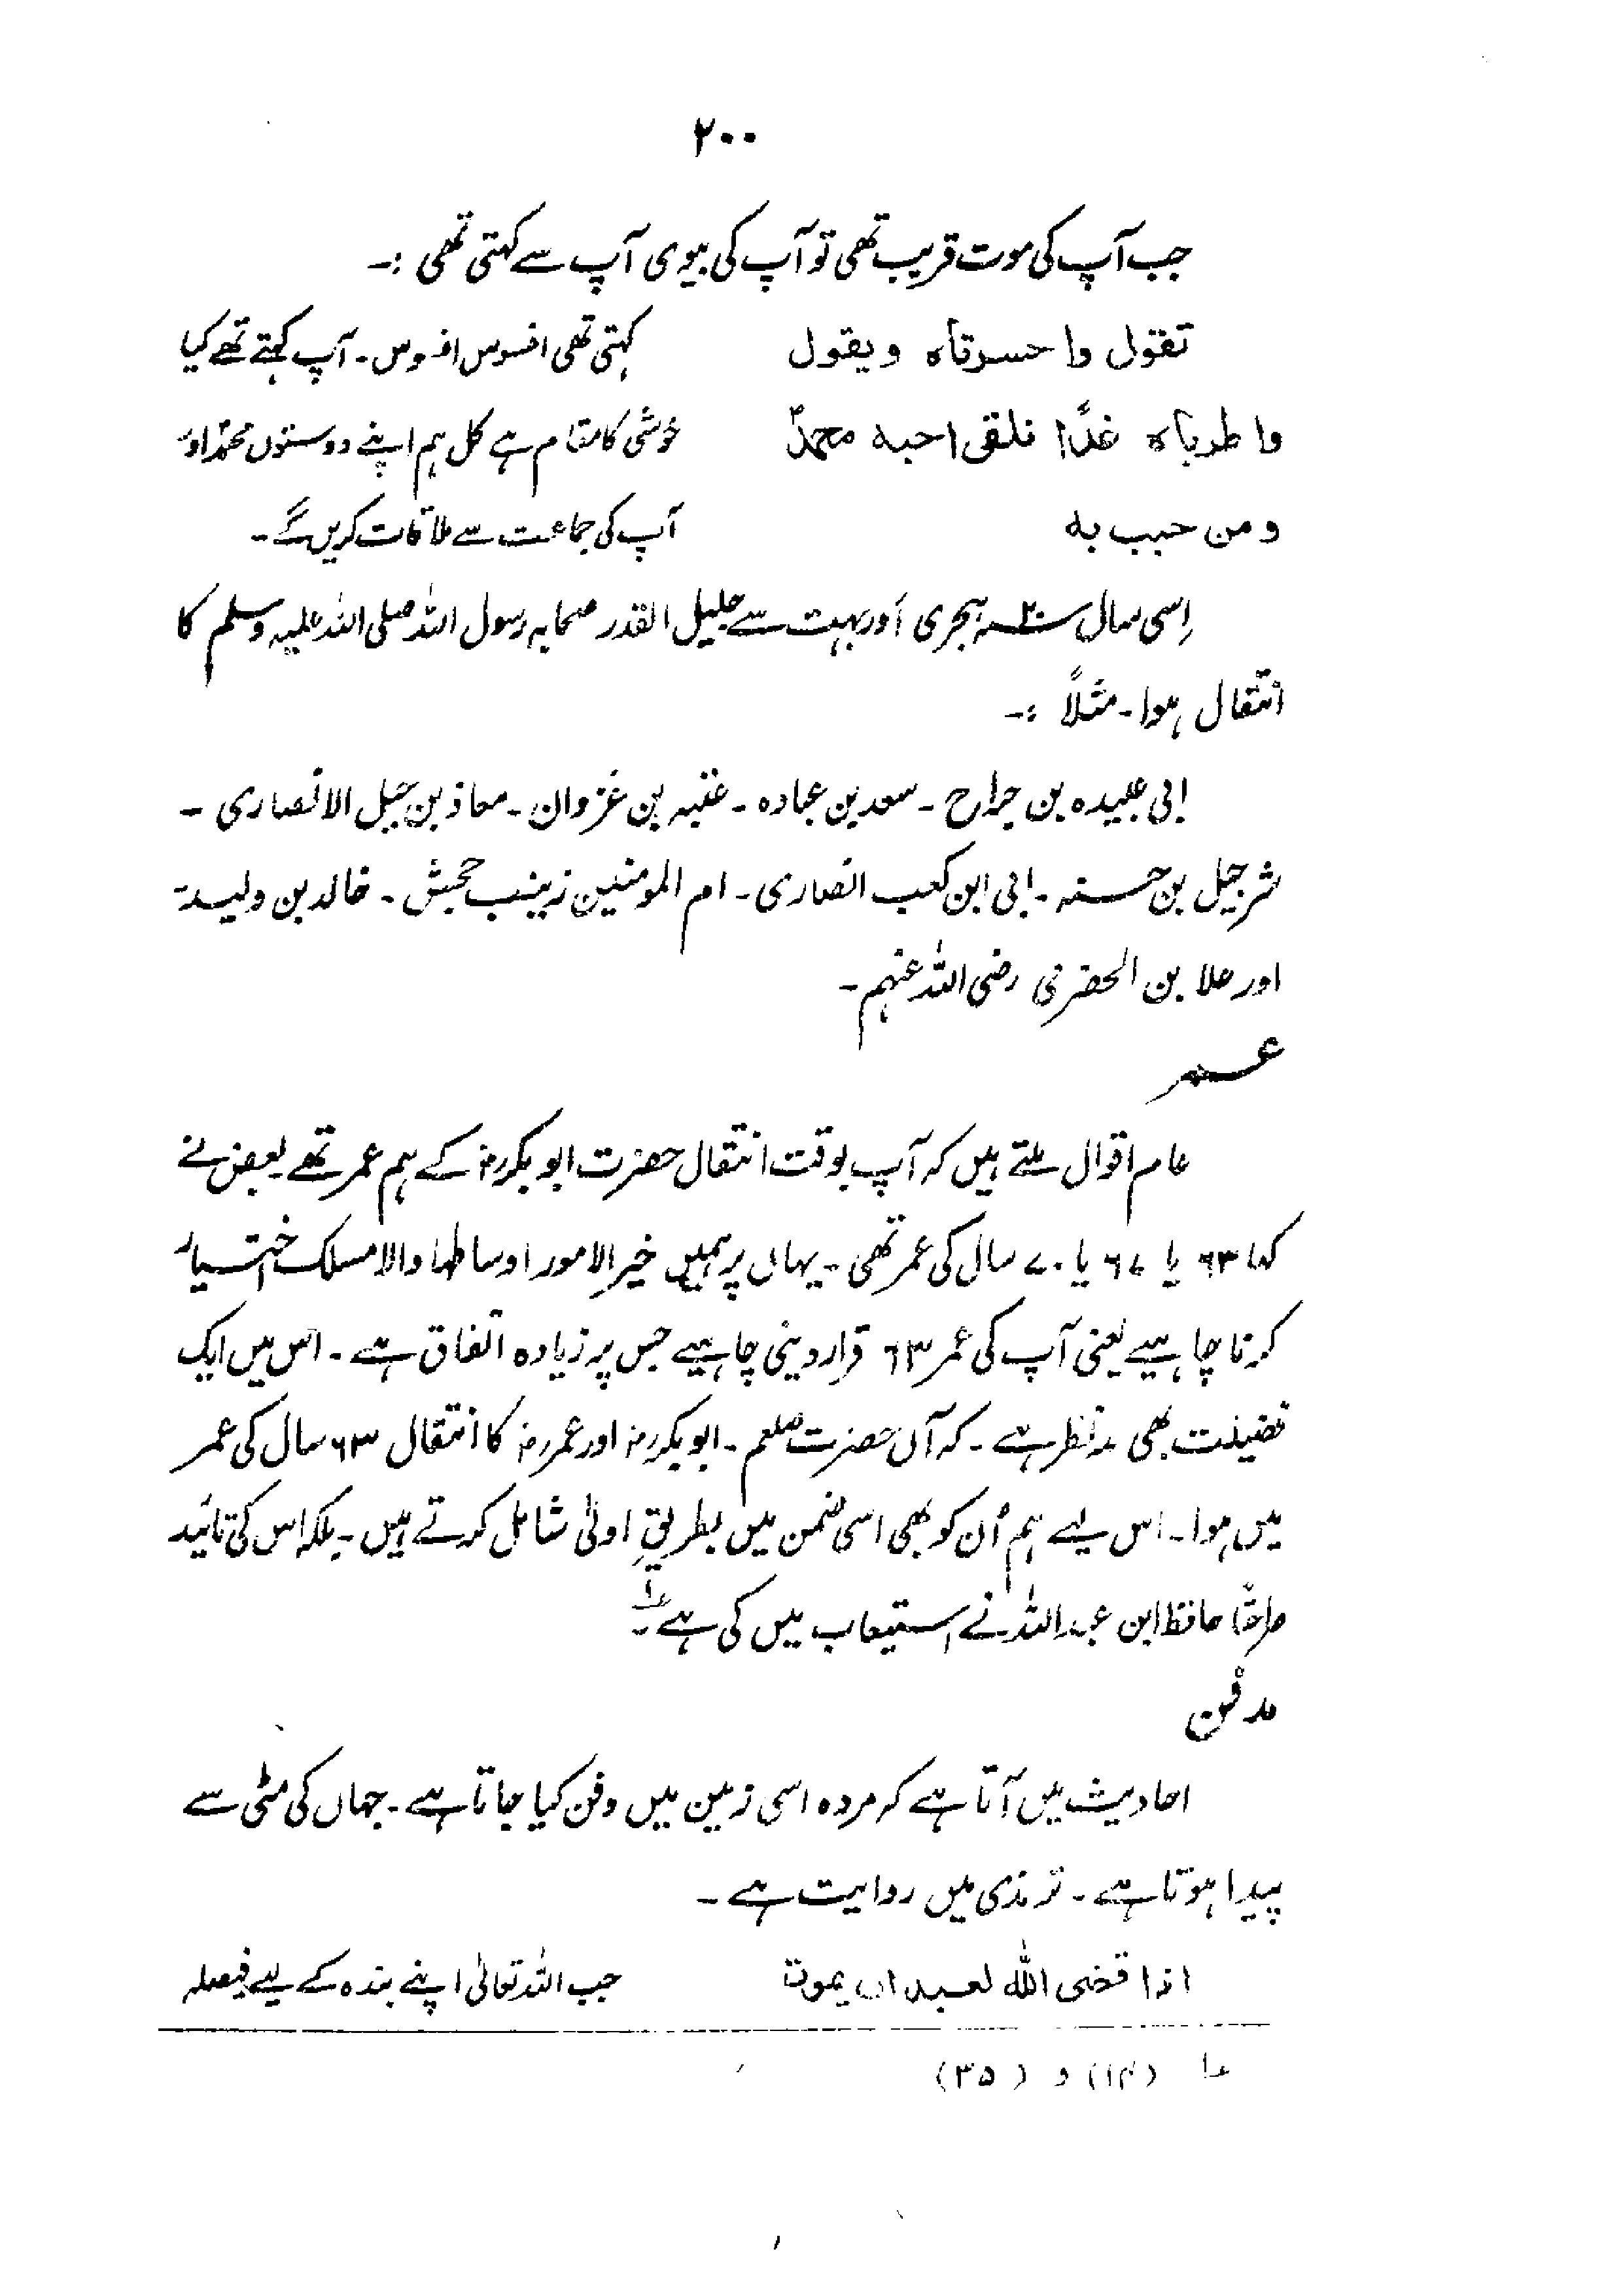 ۲۰۰
جب آپ کی موت قریب تھی تو آپ کی بیوی آپ سے کہتی تھی :-
تقول وا حسرتاہ ویقول
کہتی تھی افسوس افسوس۔ آپ کہتے تھے کیا
وا طرباہ غدًا نلقی احبہ محمدؐ
خوشی کا مقام ہے کل ہم اپنے دوستوں محمدؐ اور
ومن حبب بہ
آپ کی جماعت سے ملاقات کریں گے۔
اِسی سال ۲۰ھ ہجری اَور بہت سے جلیل القدر صحابہ رسول اللہ صلی اللہ علیہ وسلم کا
انتقال ہوا۔ مثلاً :-
ابی عبیدہ بن جراح ۔ سعد بن عبادہ ۔ عتبہ بن غزوان ۔ معاذ بن جبل الانصاری ۔
شرجیل بن حسنہ ۔ ابی ابن کعب انصاری ۔ ام المومنین زینب جحش ۔ خالد بن ولید۔
اور علا بن الحضرمی رضی اللہ عنہم ۔
عمر
عام اقوال ملتے ہیں کہ آپ بوقت انتقال حضرت ابوبکررض کے ہم عمر تھے بعض نے
کہا ۶۳ یا ۶۷ یا ۷۰ سال کی عمر تھی ۔ یہاں پر ہمیں خیر الامور اوساطہا والا مسلک اختیار
کرنا چاہیے یعنی آپ کی عمر ۶۳ قرار دینی چاہیے جس پر زیادہ اتفاق ہے ۔ اس میں ایک
فضیلت بھی مدنظر ہے ۔ کہ آں حضرت صلعم ۔ ابوبکررض اور عمررض کا انتقال ۶۳ سال کی عمر
میں ہوا ۔ اس لیے ہم اُن کو بھی اسی ضمن میں بطریقِ اولیٰ شامل کرتے ہیں ۔ بلکہ اس کی تائید
صراحتًا حافظ ابن عبداللہ نے استیعاب میں کی ہے ۔ؑ۱
مدفن
احادیث میں آتا ہے کہ مردہ اسی زمین میں دفن کیا جاتا ہے ۔ جہاں کی مٹی سے
پیدا ہوتا ہے ۔ ترمذی میں روایت ہے ۔
اذا قضی اللہ لعبد ان یموت
جب اللہ تعالیٰ اپنے بندہ کے لیے فیصلہ
ؑ۱ (۱۴) و (۳۵)